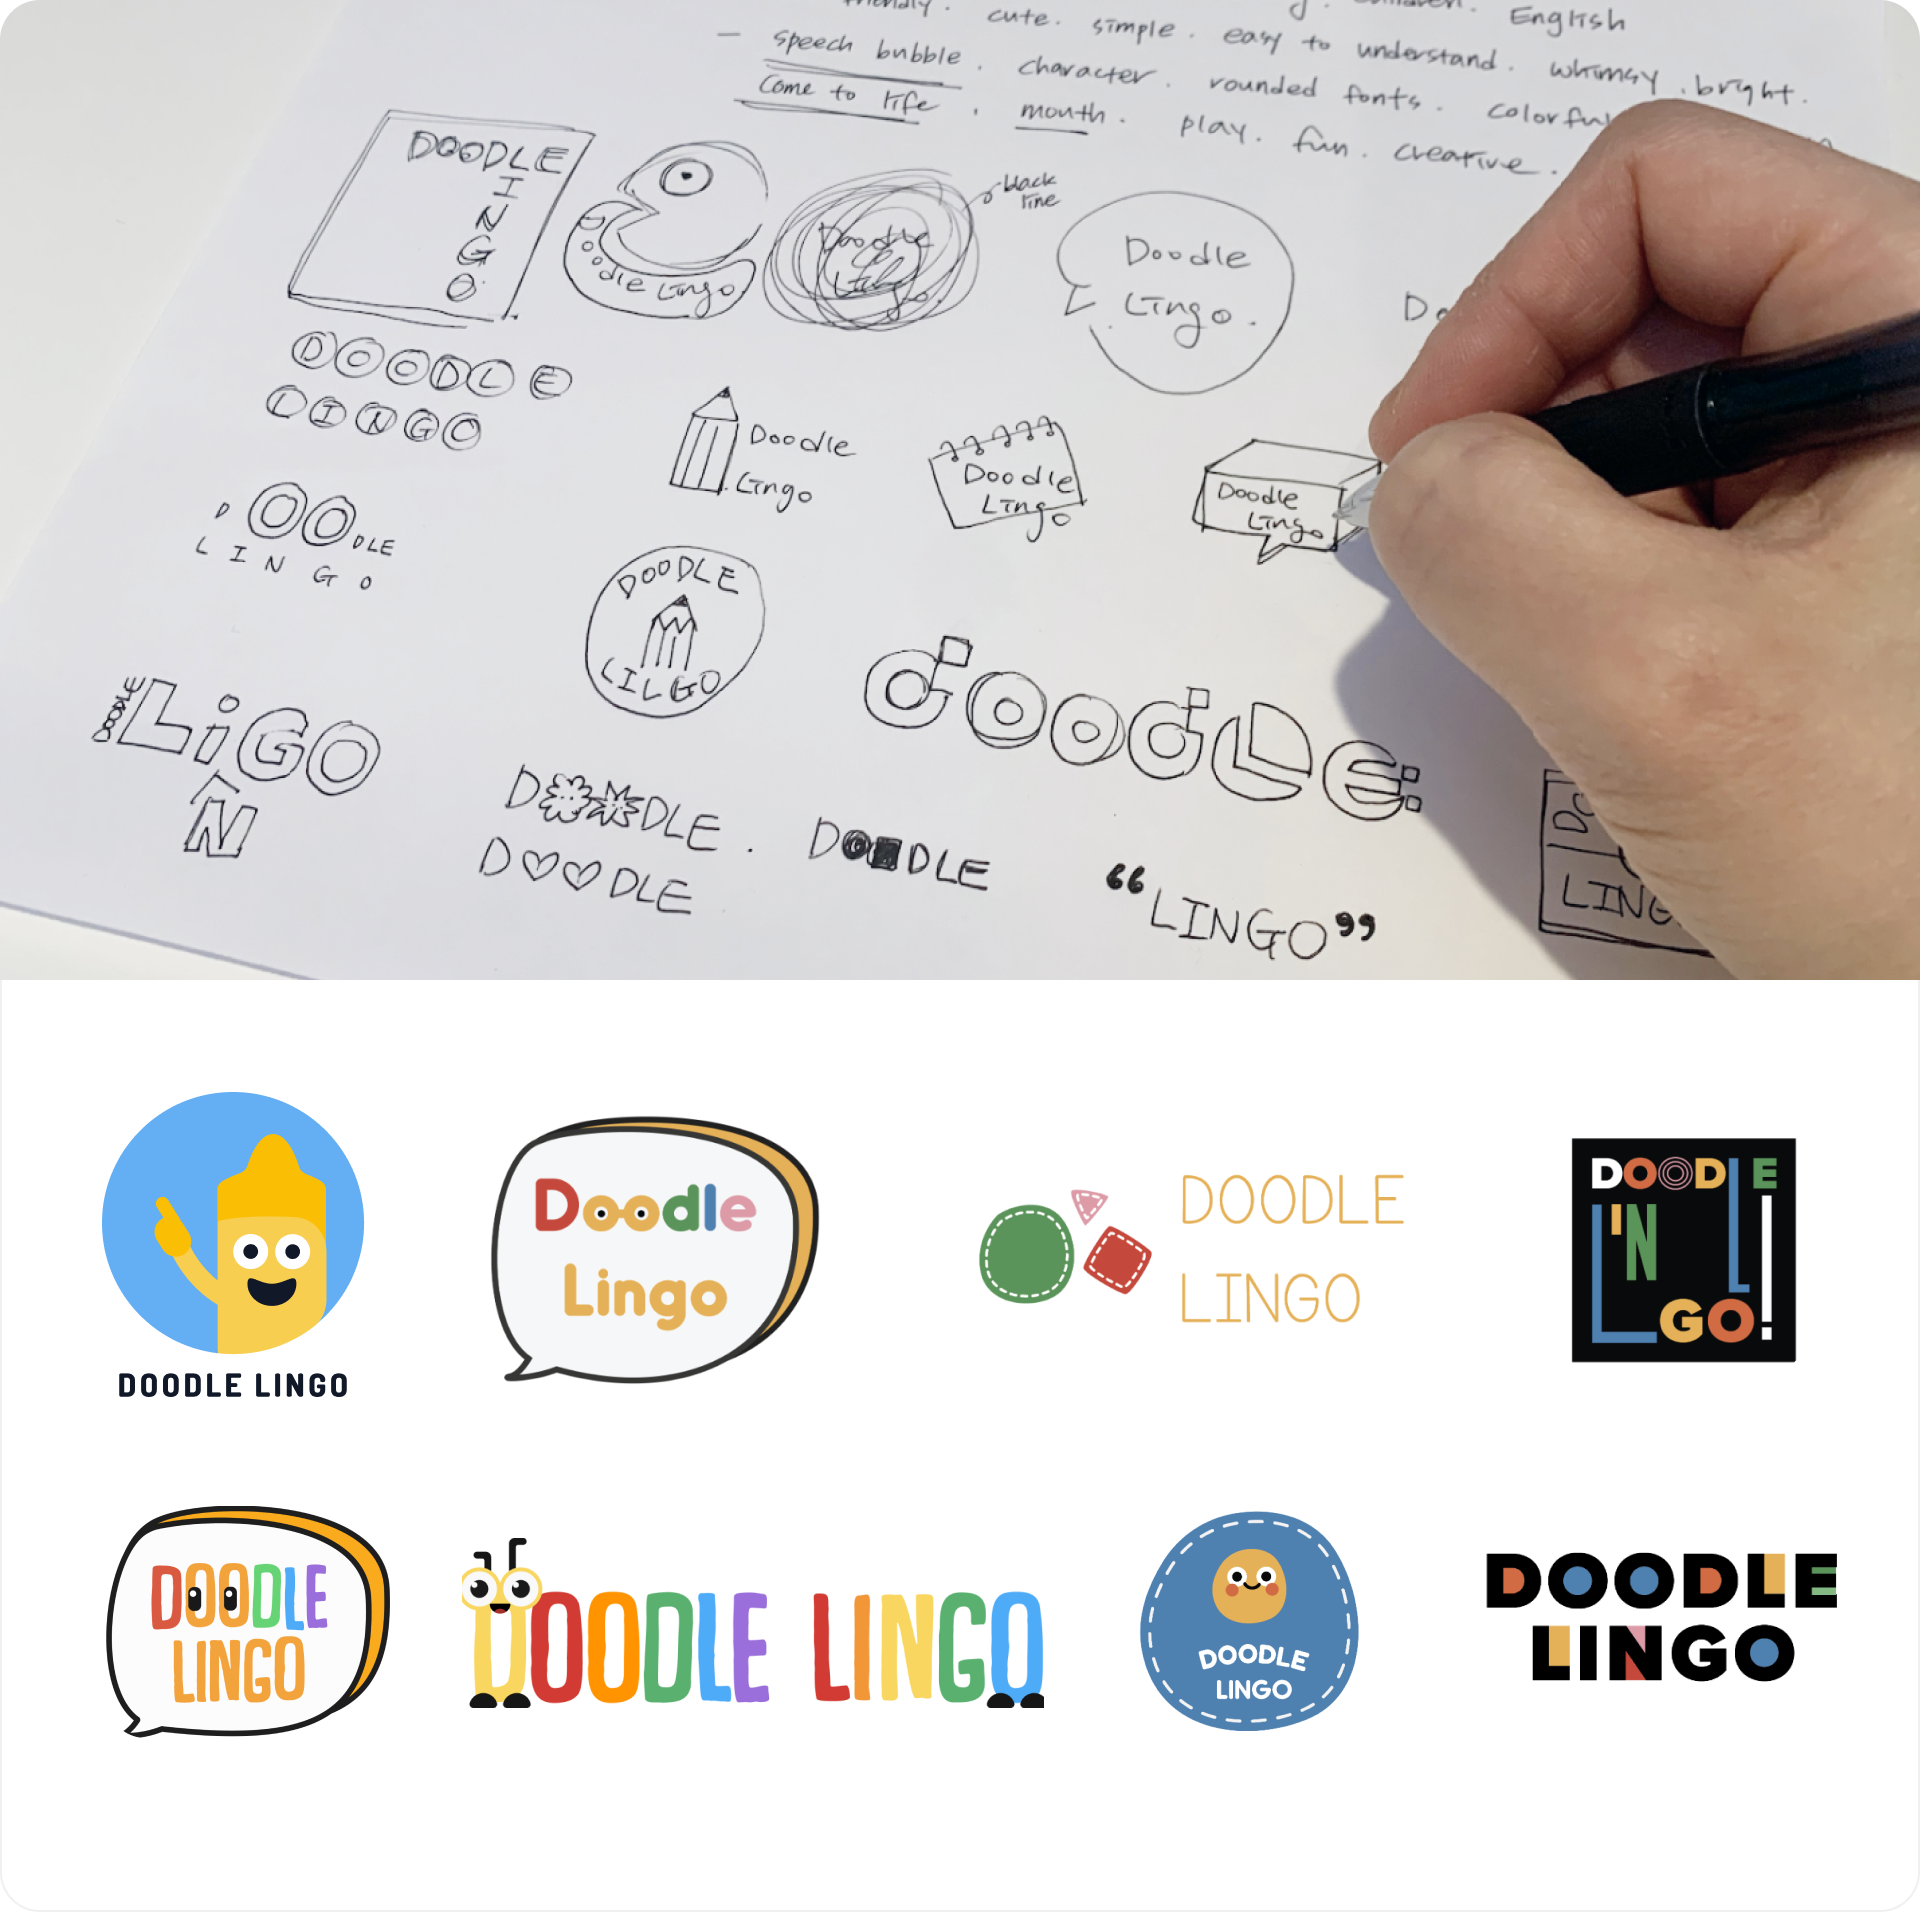 friendly. cute. simple. easy to understand. whimsy. bright.
English
— speech bubble. character. rounded fonts. colorful
come to life. mouth. play. fun. creative.
DOODLE
I
N
G
O
oodle Lingo
Doodle
Lingo.
black
line
Doodle
Lingo.
Do
DOODLE
LINGO
Doodle
Lingo
Doodle
Lingo
Doodle
Lingo
DOODLE
LINGO
DOODLE
LILGO
dooDLe
DOODLE
LiGO
N
D DLE.
D DLE
DOODLE
“LINGO”
DO
LING
DOODLE LINGO
Doodle
Lingo
DOODLE
LINGO
DOODLE
L'N
GO!
DOODLE
LINGO
DOODLE LINGO
DOODLE
LINGO
DOODLE
LINGO